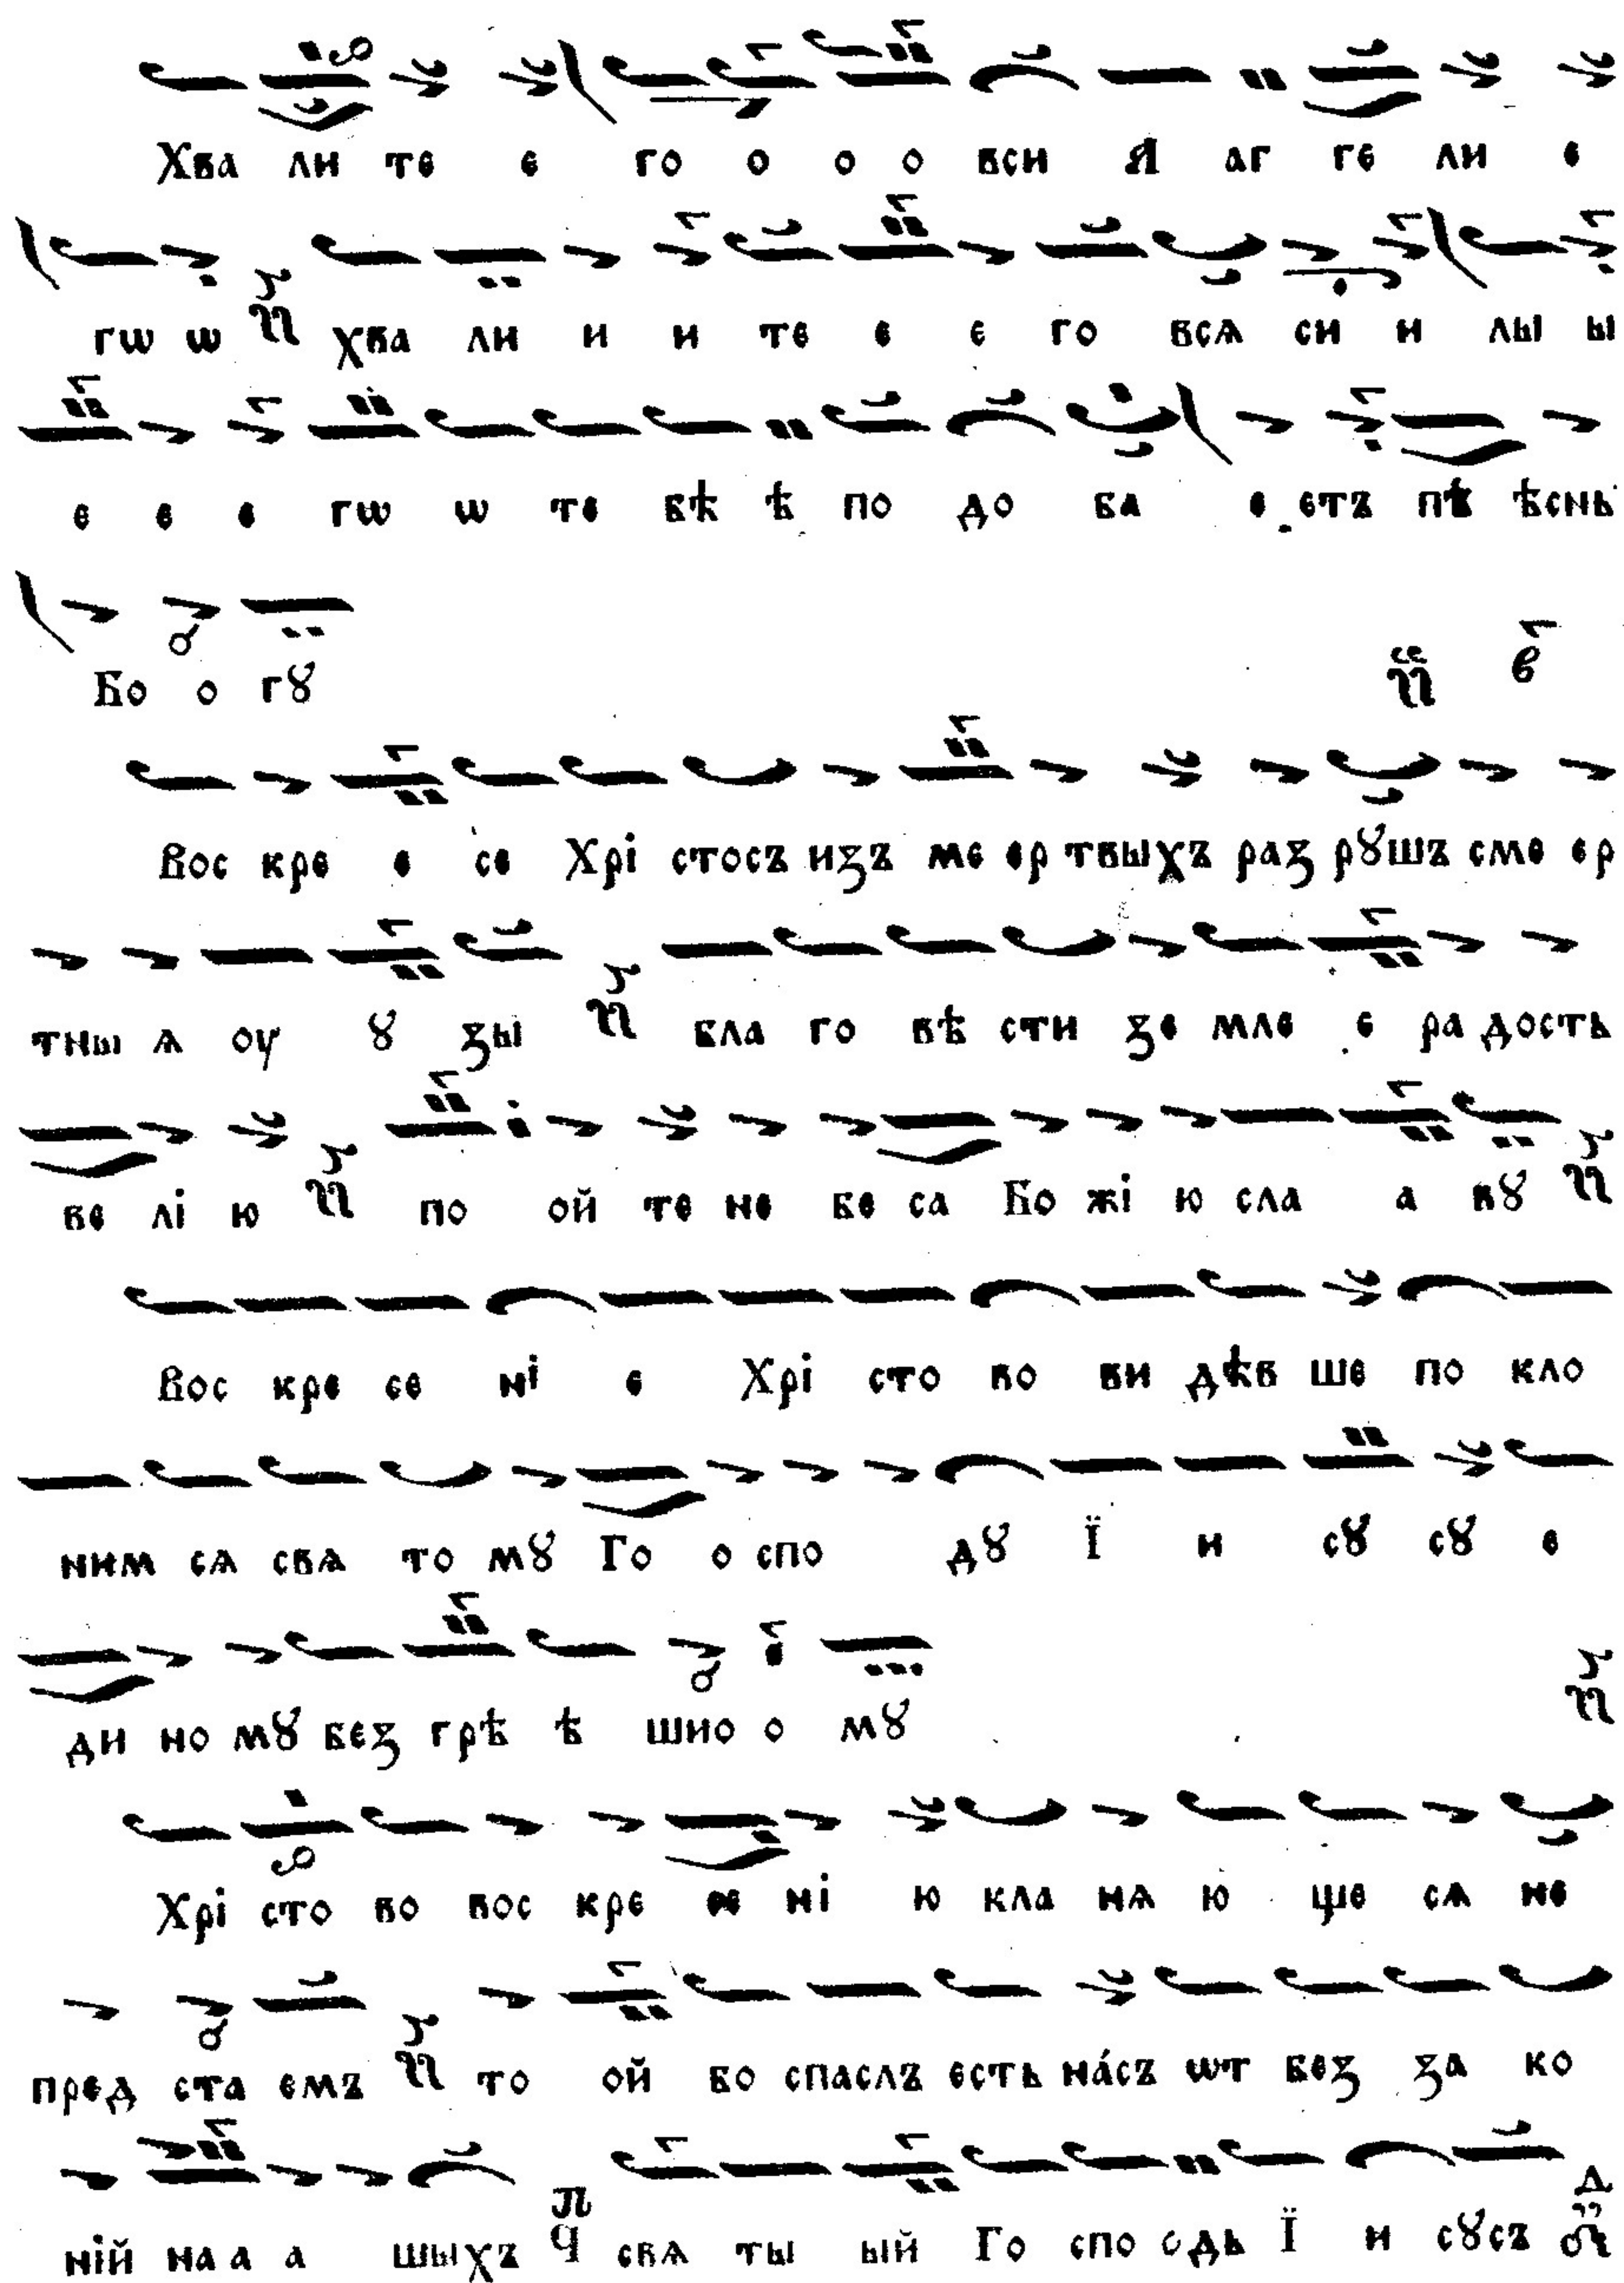 Хва ли те е го о о о вси А аг ге ли е
гѡ ѡ хва ли и и те е е го всѧ си и лы ы
е е е гѡ ѡ те бѣ ѣ по до ба е етъ пѣ ѣснь
Бо о гꙋ
Вос кре е се Хрі стосъ изъ ме ер твыхъ раз рꙋшъ сме ер
тны ѧ оу ꙋ зы бла го вѣ сти зе мле е ра дость
ве лі ю по ой те не бе са Бо жі ю сла а вꙋ
Вос кре се ні е Хрі сто во ви дѣв ше по кло
ним сѧ свѧ то мꙋ Го о спо дꙋ Ї и сꙋ сꙋ е
ди но мꙋ без грѣ ѣ шно о мꙋ
Хрі сто во вос кре се ні ю кла нѧ ю ще сѧ не
пред ста емъ то ой бо спаслъ есть на́съ ѡт без за ко
ній на а а шыхъ свѧ ты ый Го спо одь Ї и сꙋсъ